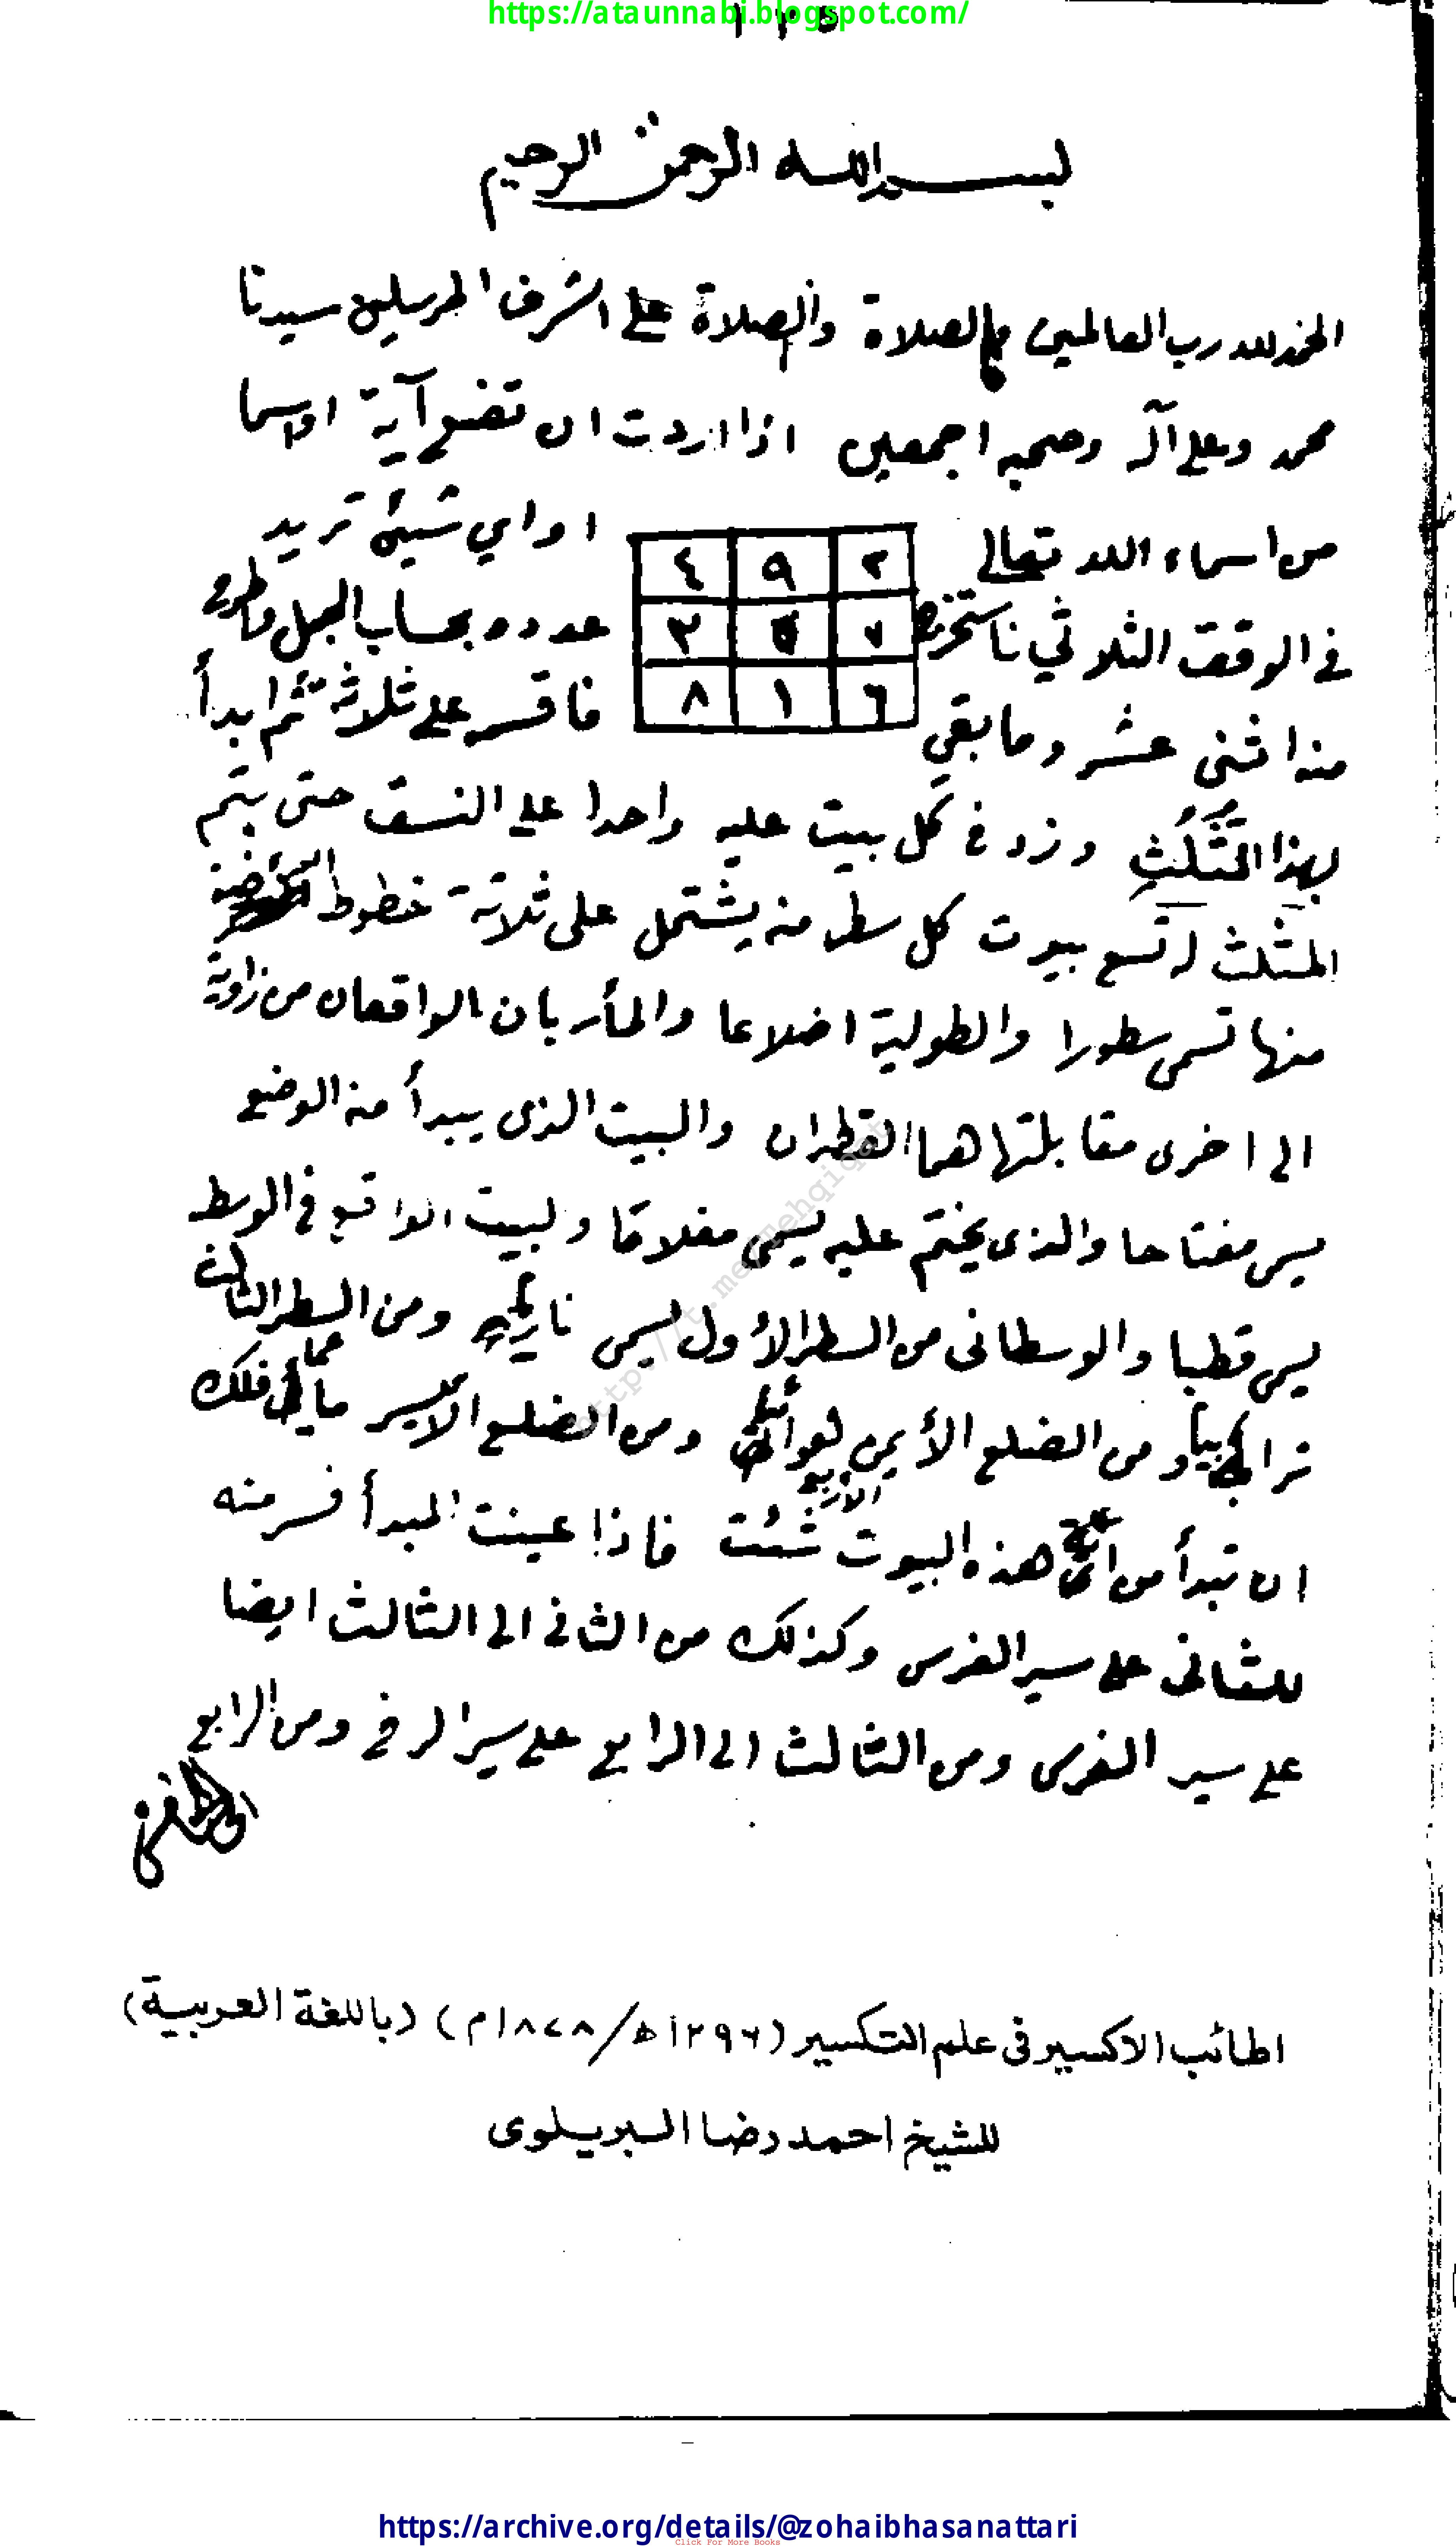 https://ataunnabi.blogspot.com/
١٢٥
بسم الله الرحمن الرحيم
الحمد لله رب العالمين والصلاة على اشرف المرسلين سيدنا
محمد وعلى آله وصحبه اجمعين اذا اردت ان تضع آية او اسما
من اسماء الله تعالى او اي شيئ تريد
في الوفق الثلاثي فاستخرج عدده بحساب الجمل واطرح
٢ ٩ ٤
٧ ٥ ٣
٦ ١ ٨
منه اثنى عشر وما بقي فاقسمه على ثلاثة ثم ابدأ
بهذا الثلث وزد في كل بيت عليه واحدا على النسق حتى يتم
المثلث له تسع بيوت كل سطر منه يشتمل على ثلاثة خطوط العرضية
منها تسمى سطورا والطولية اضلاعا والمأربان الواقعان من زاوية
الى اخرى مقابلتها هما القطران والبيت الذى يبدأ منه الوضع
يسمى مفتاحا والذى يختم عليه يسمى مغلاقا ولبيت الواقع في الوسط
يسمى قطبا والوسطانى من السطر الأول يسمى ناريا ومن السطر الثالث
ترابيا ومن الضلع الأيمن هوائيا ومن الضلع الأيسر مائيا فلك
ان تبدأ من اى هذه البيوت الأربع شئت فاذا عينت المبدأ فسر منه
للثانى على سير الفرس وكذلك من الثانى الى الثالث ايضا
على سير الفرس ومن الثالث الى الرابع على سير الرخ ومن الرابع
اطائب الاكسير فى علم التكسير (١٢٩٦ھ/١٨٧٨م) (باللغة العربية)
للشيخ احمد رضا البريلوى
https://archive.org/details/@zohaibhasanattari
Click For More Books